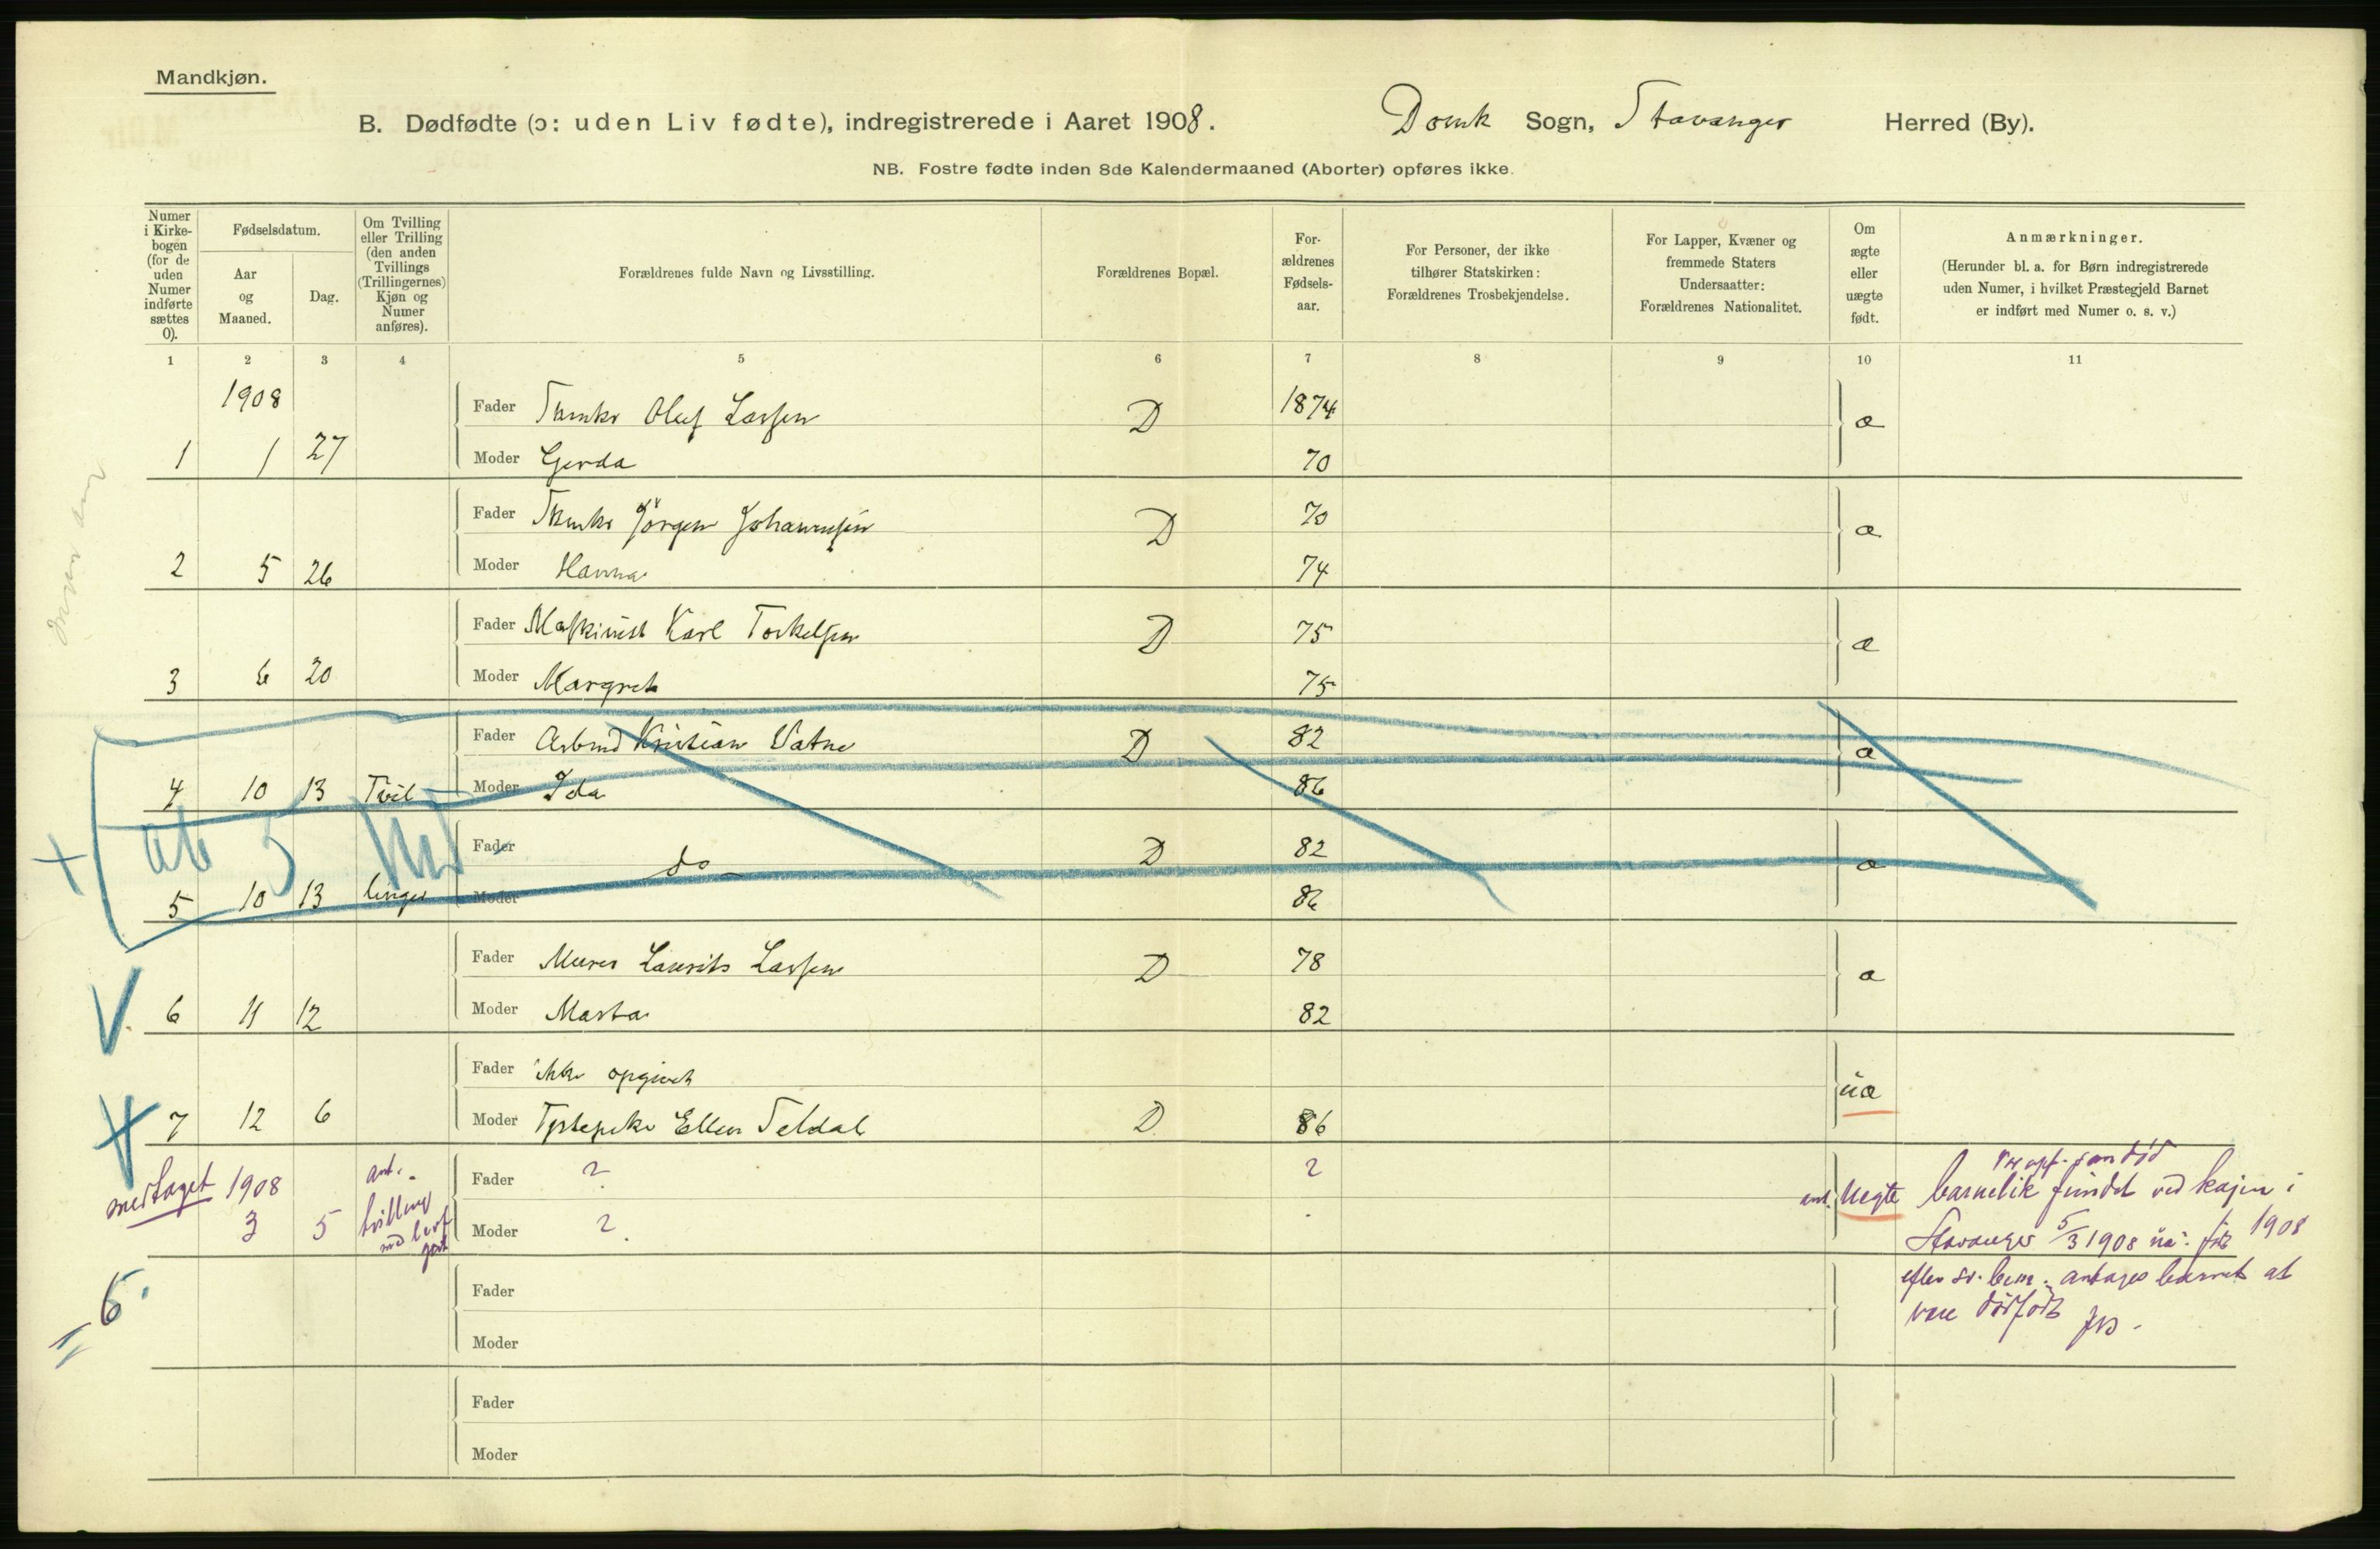 Mandkjøn.
B. Dødfødte (ɔ: uden Liv fødte), indregistrerede i Aaret 1908. Domk Sogn, Stavanger Herred (By).
NB. Fostre fødte inden 8de Kalendermaaned (Aborter) opføres ikke.
Numer i Kirkebogen (for de uden Numer indførte sættes 0).
Fødselsdatum.
Aar og Maaned.
Dag.
Om Tvilling eller Trilling (den anden Tvillings (Trillingernes) Kjøn og Numer anføres).
Forældrenes fulde Navn og Livsstilling.
Forældrenes Bopæl.
Forældrenes Fødselsaar.
For Personer, der ikke tilhører Statskirken: Forældrenes Trosbekjendelse.
For Lapper, Kvæner og fremmede Staters Undersaatter: Forældrenes Nationalitet.
Om ægte eller uægte født.
Anmærkninger.
(Herunder bl. a. for Børn indregistrerede uden Numer, i hvilket Præstegjeld Barnet er indført med Numer o. s. v.)
1 2 3 4 5 6 7 8 9 10 11
1908
Fader Oluf Larsen D 1874 æ
1 1 27 Moder Gerda 70
Fader Jörgen Johannesen D 70 æ
2 5 26 Moder Hanna 74
Fader Maskinist Karl Torkelsen D 75 æ
3 6 20 Moder Margrete 75
Fader Arbmd Kristian Satne D 82 æ
4 10 13 Tvil- Moder Ida 86
Fader do D 82 æ
5 10 13 linger Moder 86
Fader Murer Laurits Larsen D 78 æ
6 11 12 Moder Marta 82
Fader ikke opgivet uæ
7 12 6 Moder Tjstepike Ellen Teldal D 86
medtaget 1908 ant. Fader ? ? ant. Uegte
3 5 tvilling Moder ?
barnelik fundet ved kajen i
Stavanger 5/3 1908 uæ. født 1908
antages barnet at
være dødfødt
= 6.
Fader
Moder
Fader
Moder